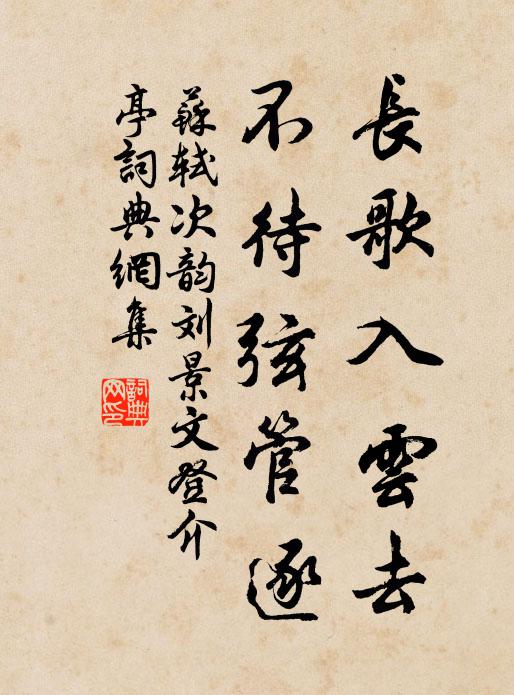 長歌入雲去
不待弦管逐
蘇軾次韵刘景文登介
亭詞典網集
詞典
网印